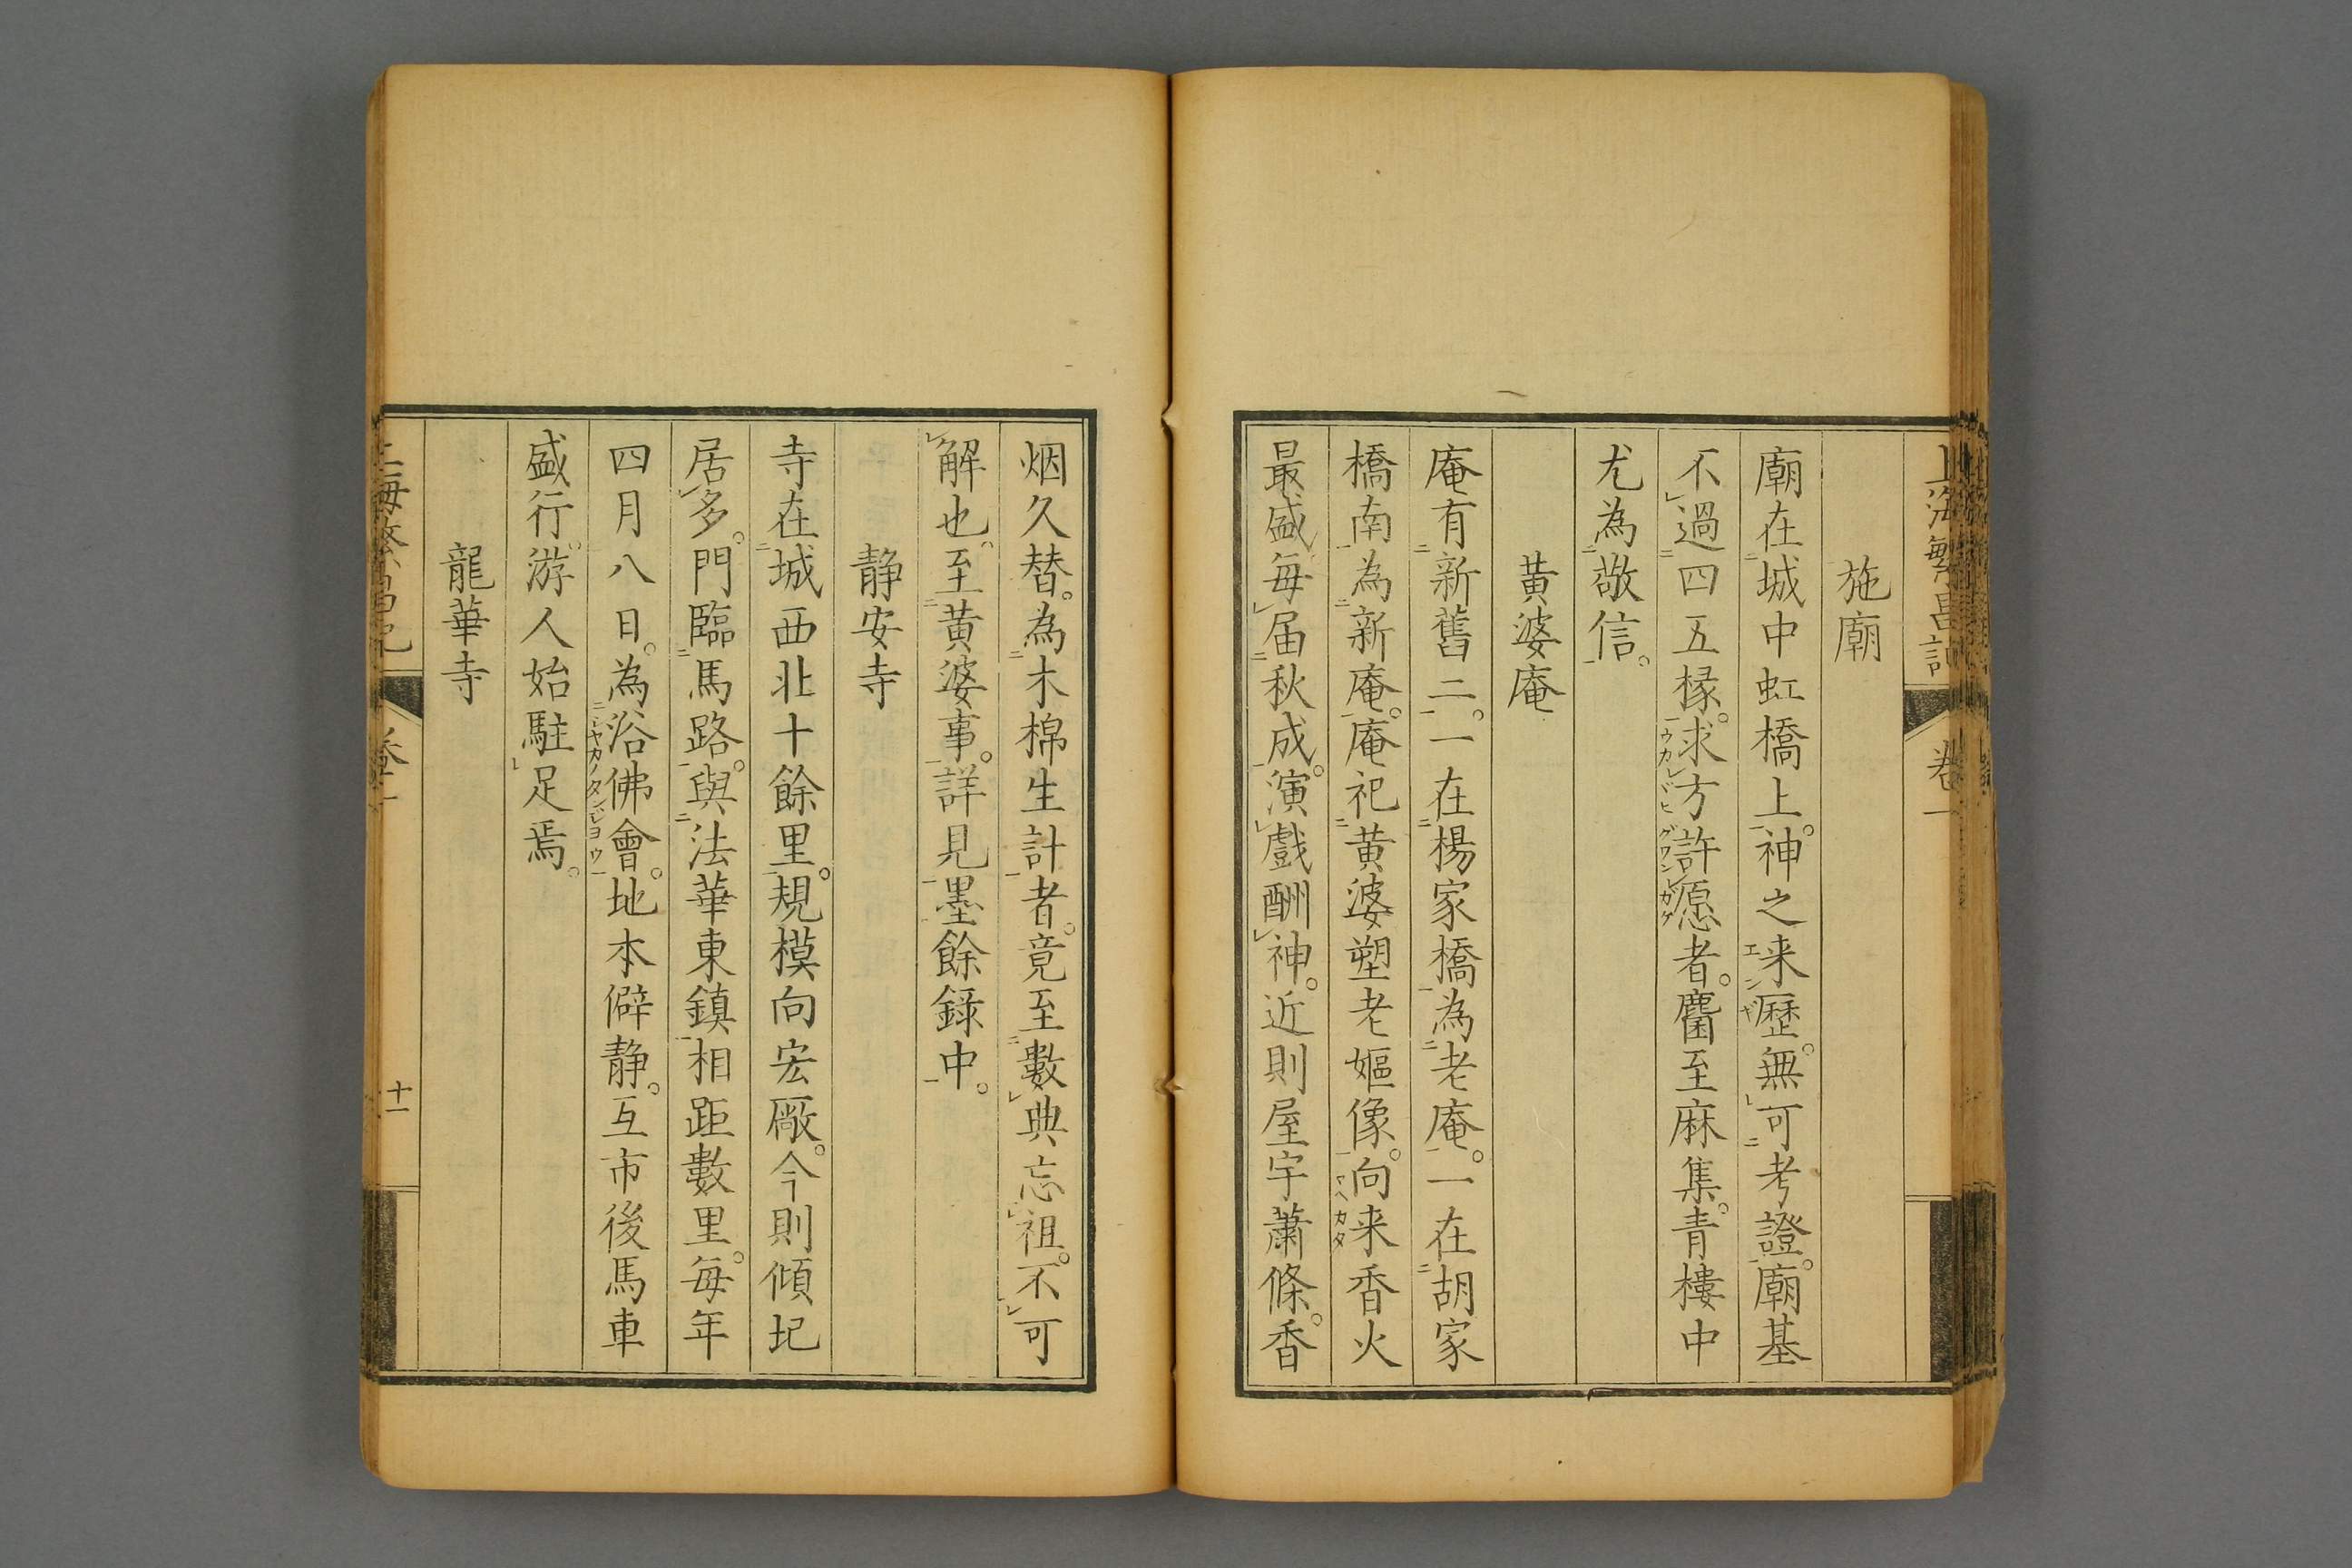 上海繁昌記 卷一
施廟
廟在城中虹橋上。神之来歷。無可考證。廟基
不過四五椽。求方許愿者。麕至麻集。青樓中
尤為敬信。
黄婆庵
庵有新舊二。一在楊家橋為老庵。一在胡家
橋南為新庵。庵祀黄婆塑老嫗像。向来香火
最盛每届秋成。演戲酬神。近則屋宇蕭條。香
烟久替。為木棉生計者。竟至數典忘祖。不可
解也。至黄婆事。詳見墨餘録中。
静安寺
寺在城西北十餘里。規模向宏廠。今則傾圮
居多。門臨馬路。與法華東鎮相距數里。每年
四月八日。為浴佛會。地本僻静。互市後馬車
盛行。游人始駐足焉。
龍華寺
上海繁昌記 卷一 十一